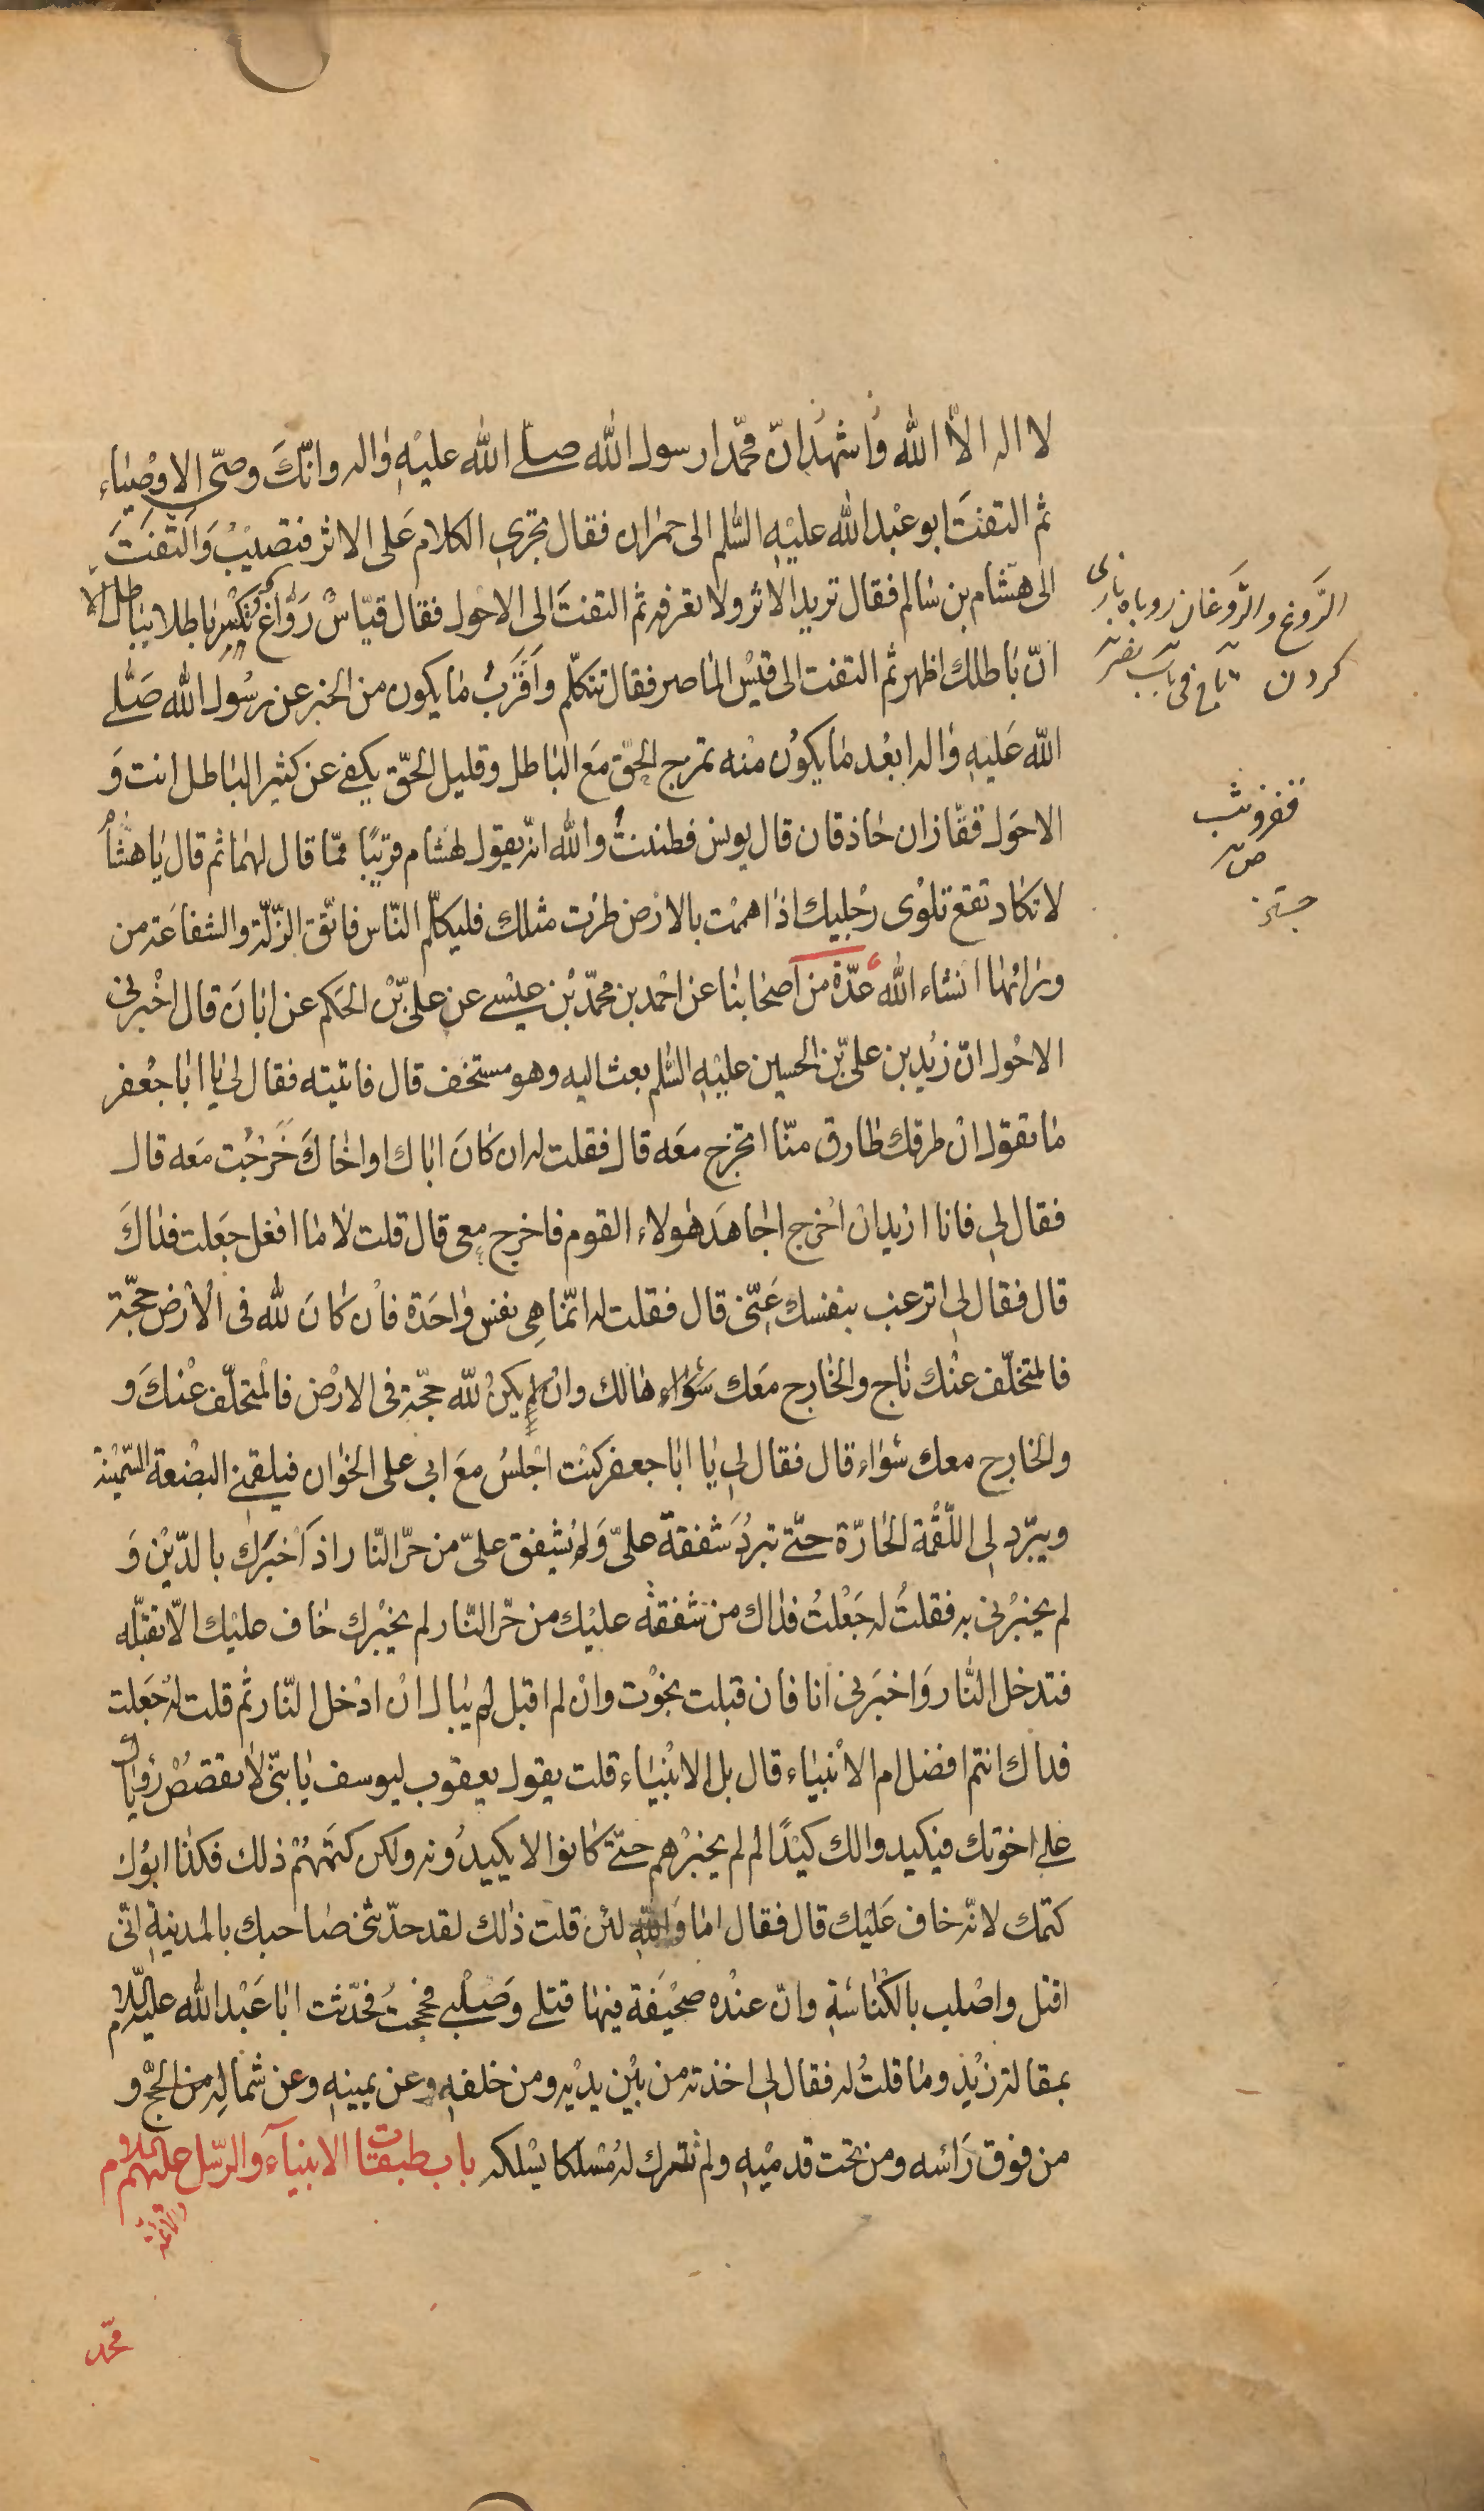 لا اله الّا الله واشهد انّ محمّدا رسول الله صلّى الله عليه واله وانّك وصيّ الاوصياء
ثم التفت ابو عبد الله عليه السّلم الى حمران فقال تجرى الكلام على الاثر فتصيب والتفت
الى هشام بن سالم فقال تريد الاثر ولا تعرفه ثم التفت الى الاحول فقال قيّاس روّاغ تكسر باطلا بباطل الّا
انّ باطلك اظهر ثم التفت الى قيس الماصر فقال تتكلّم واقرب ما يكون من الخبر عن رسول الله صلّى
الله عليه واله ابعد ما يكون منه تمزج الحقّ مع الباطل وقليل الحقّ يكفى عن كثير الباطل انت و
الاحول قفّازان حاذقان قال يونس فظننت والله انّه يقول لهشام قريبًا ممّا قال لهما ثم قال يا هشام
لا تكاد تقع تلوى رجليك اذا هممت بالارض طرت مثلك فليكلّم النّاس فاتّق الزّلّة والشفاعة من
ورائها انشاء الله عدّة من اصحابنا عن احمد بن محمّد بن عيسى عن علىّ بن الحكم عن ابان قال اخبرنى
الاحول انّ زيد بن علىّ بن الحسين عليه السّلم بعث اليه وهو مستخف قال فاتيته فقال لى يا ابا جعفر
ما تقول ان طرقك طارق منّا اتخرج معه قال فقلت له ان كان اباك او اخاك خرجت معه قال
فقال لى فانا اريد ان اخرج اجاهد هولاء القوم فاخرج معى قال قلت لا ما افعل جعلت فداك
قال فقال لى اترغب بنفسك عنّى قال فقلت له انّما هى نفس واحدة فان كان لله فى الارض حجّة
فالمتخلّف عنك ناج والخارج معك سواء هالك وان لم يكن لله حجّة فى الارض فالمتخلّف عنك و
والخارج معك سواء قال فقال لى يا ابا جعفر كنت اجلس مع ابى على الخوان فيلقمنى البضعة السّمينة
ويبرّد لى اللّقمة الحارّة حتّى تبرد شفقة علىّ ولم يشفق علىّ من حرّ النّار اذ اخبرك بالدّين و
لم يخبرنى به فقلت له جعلت فداك من شفقته عليك من حرّ النّار لم يخبرك خاف عليك الّا تقبله
فتدخل النّار واخبرنى انا فان قبلت نجوت وان لم اقبل لم يبال ان ادخل النّار ثم قلت له جعلت
فداك انتم افضل ام الانبياء قال بل الانبياء قلت يقول يعقوب ليوسف يا بنىّ لا تقصص رؤياك
على اخوتك فيكيدوا لك كيدًا لم لم يخبرهم حتّى كانوا لا يكيدونه ولكن كتمهم ذلك فكذا ابوك
كتمك لانّه خاف عليك قال فقال اما والله لئن قلت ذلك لقد حدّثنى صاحبك بالمدينة انّى
اقتل واصلب بالكناسة وانّ عنده صحيفة فيها قتلى وصلبى فحججت فحدّثت ابا عبد الله عليه السّلام
بمقالة زيد وما قلت له فقال لى اخذته من بين يديه ومن خلفه وعن يمينه وعن شماله من الحجّ و
من فوق رأسه ومن تحت قدميه ولم تترك له مسلكا يسلكه باب طبقات الانبياء والرّسل عليهم السلام
والائمّة
محمّد
الرّوغ والرّوغان روباه بازى
كردن تاج فى باب نصر
قفز وثب
ص
جستن